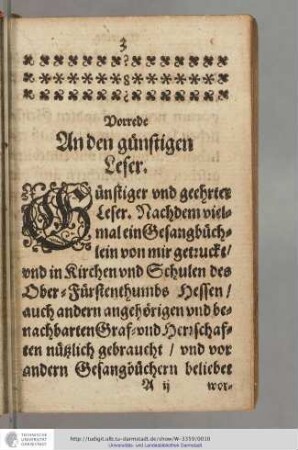 3
Vorrede
An den günstigen
Leser.
Günstiger vnd geehrter
Leser. Nachdem viel-
mal ein Gesangbüch-
lein von mir getruckt/
vnd in Kirchen vnd Schulen des
Ober-Fürstenthumbs Hessen/
auch andern angehörigen vnd be-
nachbarten Graf- vnd Herrschaf-
ten nützlich gebraucht / vnd vor
andern Gesangbüchern beliebet
A ij wor-
TECHNISCHE
UNIVERSITÄT
DARMSTADT
http://tudigit.ulb.tu-darmstadt.de/show/W-3359/0010
Universitäts- und Landesbibliothek Darmstadt